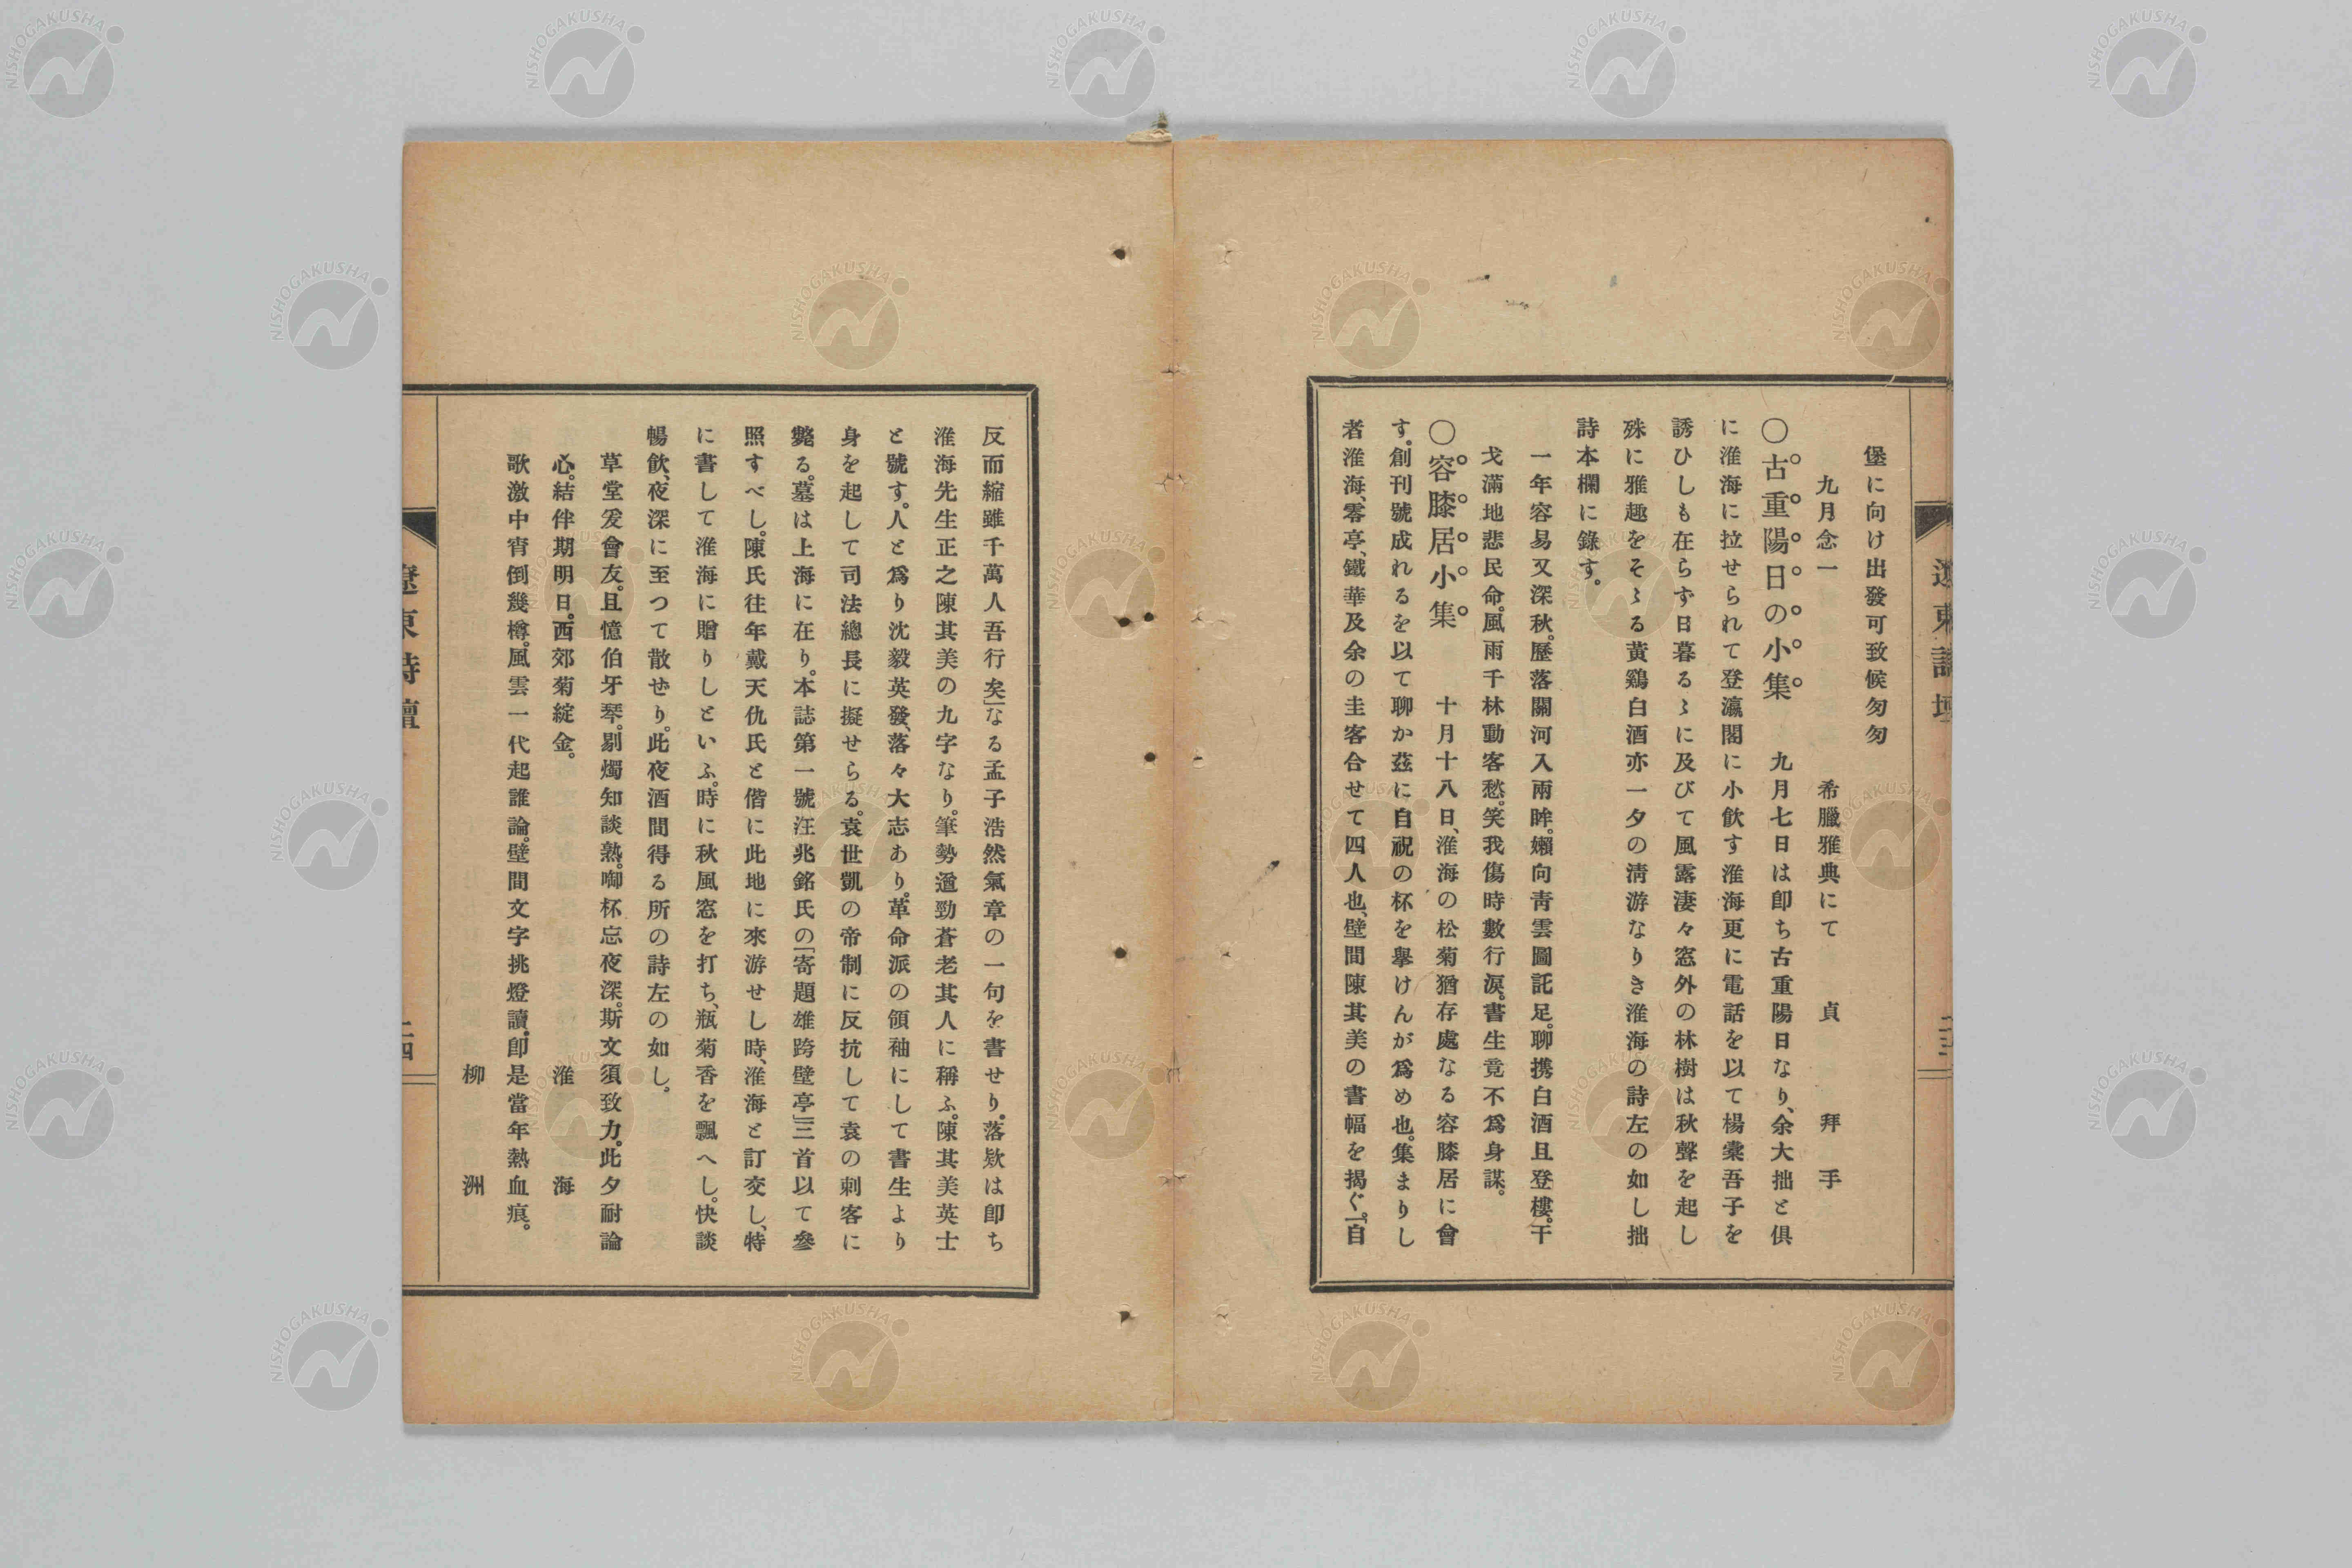 遼東詩壇
二三
堡に向け出發可致候匆匆
九月念一　希臘雅典にて　貞　拜手
〇古重陽日の小集　九月七日は卽ち古重陽日なり、余大拙と俱
に淮海に拉せられて登瀛閣に小飮す淮海更に電話を以て楊槖吾子を
誘ひしも在らず日暮る〻に及びて風露淒々窓外の林樹は秋聲を起し
殊に雅趣をそ〻る黃鷄白酒亦一夕の淸游なりき淮海の詩左の如し拙
詩本欄に錄す。
一年容易又深秋。歷落關河入兩眸。嬾向靑雲圖託足。聊携白酒且登樓。干
戈滿地悲民命。風雨千林動客愁。笑我傷時數行淚。書生竟不爲身謀。
〇容膝居小集　十月十八日、淮海の松菊猶存處なる容膝居に會
す。創刊號成れるを以て聊か玆に自祝の杯を擧けんが爲め也。集まりし
者淮海、零亭、鐵華及余の圭客合せて四人也、壁間陳其美の書幅を揭ぐ。「自
反而縮雖千萬人吾行矣」なる孟子浩然氣章の一句を書せり。落欵は卽ち
淮海先生正之陳其美の九字なり。筆勢遒勁蒼老其人に稱ふ。陳其美英士
と號す。人と爲り沈毅英發、落々大志あり。革命派の領袖にして書生より
身を起して司法總長に擬せらる。袁世凱の帝制に反抗して袁の刺客に
斃る。墓は上海に在り。本誌第一號汪兆銘氏の「寄題雄跨壁亭」三首以て參
照すべし。陳氏往年戴天仇氏と偕に此地に來游せし時、淮海と訂交し、特
に書して淮海に贈りしといふ。時に秋風窓を打ち、瓶菊香を飄へし。快談
暢飮、夜深に至つて散ぜり。此夜酒間得る所の詩左の如し。
草堂爰會友。且憶伯牙琴。剔燭知談熟。啣杯忘夜深。斯文須致力。此夕耐論
心。結伴期明日。西郊菊綻金。　淮海
歌激中宵倒幾樽。風雲一代起誰論。壁間文字挑燈讀。卽是當年熱血痕。
柳洲
遼東詩壇
二四